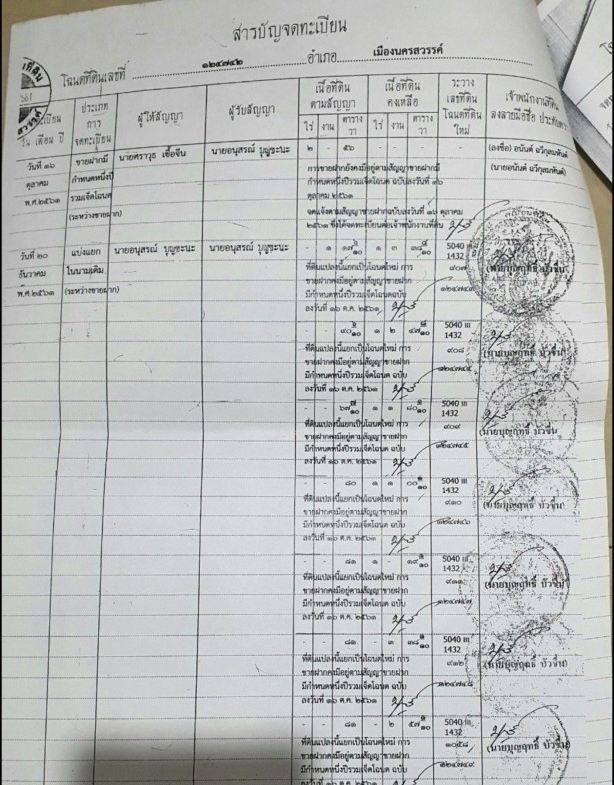 สารบัญจดทะเบียน
โฉนดที่ดินเลขที่ ๑๒๔๗๔๒ อำเภอ เมืองนครสวรรค์
จดทะเบียน
วัน เดือน ปี
ประเภท
การ
จดทะเบียน
ผู้ให้สัญญา
ผู้รับสัญญา
เนื้อที่ดิน
ตามสัญญา
ไร่ งาน ตาราง
วา
เนื้อที่ดิน
คงเหลือ
ไร่ งาน ตาราง
วา
ระวาง
เลขที่ดิน
โฉนดที่ดิน
ใหม่
เจ้าพนักงานที่ดิน
ลงลายมือชื่อ ประทับตรา
วันที่ ๑๖
ตุลาคม
พ.ศ.๒๕๖๑
ขายฝากมี
กำหนดหนึ่งปี
รวมเจ็ดโฉนด
(ระหว่างขายฝาก)
นายศราวุธ เชื้อจีน
นายอนุสรณ์ บุญชะนะ
๒ - ๕๖
การขายฝากยังคงมีอยู่ตามสัญญาขายฝากมี
กำหนดหนึ่งปีรวมเจ็ดโฉนด ฉบับลงวันที่ ๑๖
ตุลาคม ๒๕๖๑
จดแจ้งตามสัญญาขายฝากฉบับลงวันที่ ๑๖ ตุลาคม
๒๕๖๑ ซึ่งได้จดทะเบียนต่อเจ้าพนักงานที่ดิน
(ลงชื่อ) อนันต์ ฉวีกุลมหันต์
(นายอนันต์ ฉวีกุลมหันต์)
วันที่ ๒๐
ธันวาคม
พ.ศ.๒๕๖๑
แบ่งแยก
ในนามเดิม
(ระหว่างขายฝาก)
นายอนุสรณ์ บุญชะนะ
นายอนุสรณ์ บุญชะนะ
5040 III
1432
๙๐๗
๑๒๔๗๔๓
ที่ดินแปลงนี้แยกเป็นโฉนดใหม่ การ
ขายฝากคงมีอยู่ตามสัญญาขายฝาก
มีกำหนดหนึ่งปีรวมเจ็ดโฉนด ฉบับ
ลงวันที่ ๑๖ ต.ค. ๒๕๖๑
(นายบุญฤทธิ์ บัวชื่น)
5040 III
1432
๙๐๘
๑๒๔๗๔๔
ที่ดินแปลงนี้แยกเป็นโฉนดใหม่ การ
ขายฝากคงมีอยู่ตามสัญญาขายฝาก
มีกำหนดหนึ่งปีรวมเจ็ดโฉนด ฉบับ
ลงวันที่ ๑๖ ต.ค. ๒๕๖๑
(นายบุญฤทธิ์ บัวชื่น)
5040 III
1432
๙๐๙
๑๒๔๗๔๕
ที่ดินแปลงนี้แยกเป็นโฉนดใหม่ การ
ขายฝากคงมีอยู่ตามสัญญาขายฝาก
มีกำหนดหนึ่งปีรวมเจ็ดโฉนด ฉบับ
ลงวันที่ ๑๖ ต.ค. ๒๕๖๑
(นายบุญฤทธิ์ บัวชื่น
- - ๘๐
5040 III
1432
๙๑๐
๑๒๔๗๔๖
ที่ดินแปลงนี้แยกเป็นโฉนดใหม่ การ
ขายฝากคงมีอยู่ตามสัญญาขายฝาก
มีกำหนดหนึ่งปีรวมเจ็ดโฉนด ฉบับ
ลงวันที่ ๑๖ ต.ค. ๒๕๖๑
(นายบุญฤทธิ์ บัวชื่น)
- - ๘๑
5040 III
1432
๙๑๑
๑๒๔๗๔๗
ที่ดินแปลงนี้แยกเป็นโฉนดใหม่ การ
ขายฝากคงมีอยู่ตามสัญญาขายฝาก
มีกำหนดหนึ่งปีรวมเจ็ดโฉนด ฉบับ
ลงวันที่ ๑๖ ต.ค. ๒๕๖๑
(นายบุญฤทธิ์ บัวชื่น)
- - ๘๑
5040 III
1432
๙๑๒
๑๒๔๗๔๘
ที่ดินแปลงนี้แยกเป็นโฉนดใหม่ การ
ขายฝากคงมีอยู่ตามสัญญาขายฝาก
มีกำหนดหนึ่งปีรวมเจ็ดโฉนด ฉบับ
ลงวันที่ ๑๖ ต.ค. ๒๕๖๑
(นายบุญฤทธิ์ บัวชื่น)
- - ๘๑
5040 III
1432
๑๒๔๗๔๙
ที่ดินแปลงนี้แยกเป็นโฉนดใหม่ การ
ขายฝากคงมีอยู่ตามสัญญาขายฝาก
มีกำหนดหนึ่งปีรวมเจ็ดโฉนด ฉบับ
ลงวันที่ ๑๖ ต.ค. ๒๕๖๑
(นายบุญฤทธิ์ บัวชื่น)